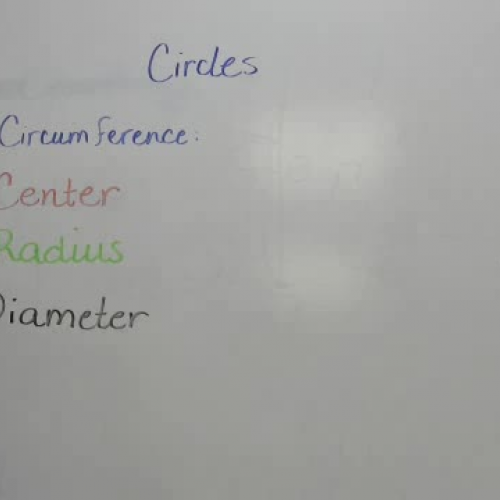 Circles
Circumference:
Center
Radius
Diameter